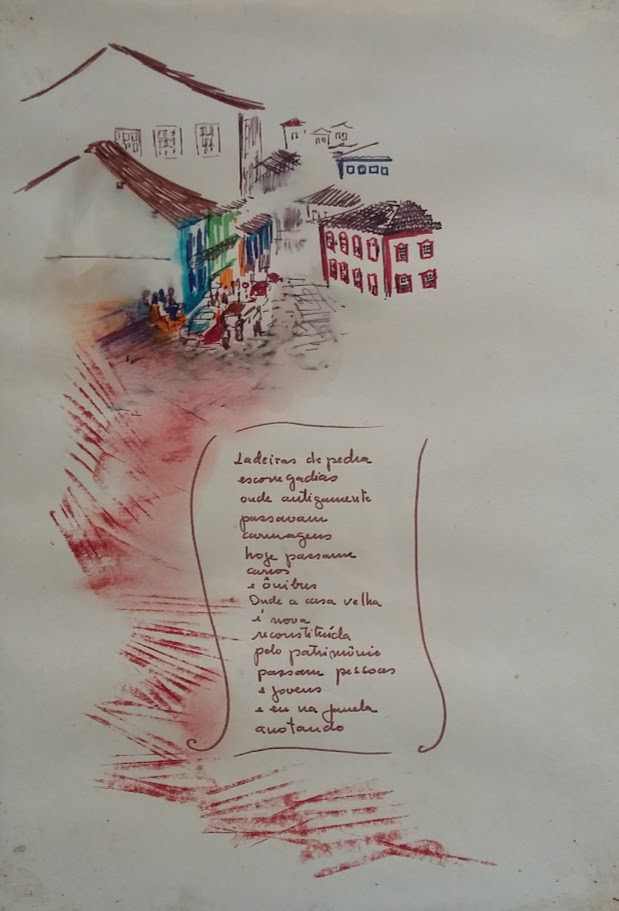 Ladeiras de pedra
escorregadias
onde antigamente
passavam
carruagens
hoje passam
carros
e ônibus
Onde a casa velha
é nova
reconstituída
pelo patrimônio
passam pessoas
e jovens
e eu na janela
anotando